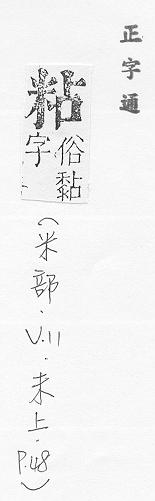 正字通
粘
俗黏
字
（米部．V.11．未上．P.48）